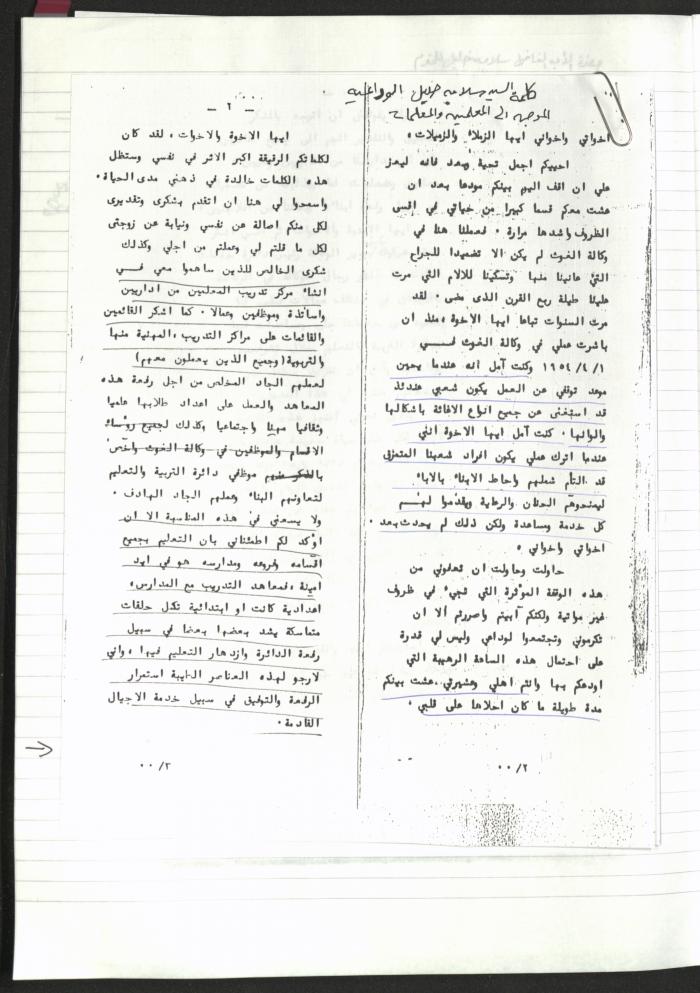 كلمة السيد سلامه خليل الوداعيه
الموجه الى المعلمين والمعلمات
اخواتي واخواني ايها الزملاء والزميلات،
احييكم اجمل تحية وبعد فانه ليعز
علي ان اقف اليوم بينكم مودعا بعد ان
عشت معكم قسما كبيرا من حياتي في اقسى
الظروف واشدها مرارة، فعملنا هنا في
وكالة الغوث لم يكن الا تضميدا للجراح
التي عانينا منها وتسكينا للالام التي مرت
علينا طيلة ربع القرن الذى مضى، لقد
مرت السنوات تباعا ايها الاخوة، منذ ان
باشرت عملي في وكالة الغوث فـــي
١٩٥٤/٤/١ وكنت آمل انه عندما يحين
موعد توقفي عن العمل يكون شعبي عندئذ
قد استغنى عن جميع انواع الاغاثة باشكالها
والوانها، كنت آمل ايها الاخوة انني
عندما اترك عملي يكون افراد شعبنا المتمزق
قد التأم شملهم واحاط الابناء بالاباء
ليمنحوهم الحنان والرعاية ويقدموا لهــم
كل خدمة ومساعدة ولكن ذلك لم يحدث بعد،
اخواتي واخواني،
حاولت وحاولت ان تعفوني من
هذه الوقفة المؤثرة التي تجيء في ظروف
غير مواتية ولكنكم آبيتم واصررتم الا ان
تكرموني وتجتمعوا لوداعي وليس لي قدرة
على احتمال هذه الساعة الرهيبة التي
اودعكم بها وانتم اهلي وعشيرتي، عشت بينكم
مدة طويلة ما كان احلاها على قلبي،
٢/ ٠٠
- ٢ -
ايها الاخوة والاخوات، لقد كان
لكلماتكم الرقيقة اكبر الاثر في نفسي وستظل
هذه الكلمات خالدة في ذهني مدى الحياة،
واسمحوا لي هنا ان اتقدم بشكرى وتقديرى
لكل منكم اصالة عن نفسي ونيابة عن زوجتي
لكل ما قلتم لي وعملتم من اجلي وكذلك
شكرى الخالص للذين ساهموا معي فـــي
انشاء مركز تدريب المعلمين من اداريين
واساتذة وموظفين وعمال، كما اشكر القائمين
والقائمات على مراكز التدريب، المهنية منها
والتربوية (وجميع الذين يعملون معهم)
لعملهم الجاد المخلص من اجل رفعة هذه
المعاهد والعمل على اعداد طلابها علميا
وثقافيا مهنيا واجتماعيا وكذلك لجميع رؤساء
الاقسام والموظفين في وكالة الغوث واخص
بالذكر منهم موظفي دائرة التربية والتعليم
لتعاونهم البناء وعملهم الجاد الهادف،
ولا يسعني في هذه المناسبة الا ان
اؤكد لكم اطمئناني بان التعليم بجميع
اقسامه وفروعه ومدارسه هو في ايد
امينة، فمعاهد التدريب مع المدارس،
اعدادية كانت او ابتدائية تشكل حلقات
متماسكة يشد بعضها بعضا في سبيل
رفعة الدائرة وازدهار التعليم فيها، واني
لارجو لهذه العناصر الطيبة استمرار
الرفعة والتوفيق في سبيل خدمة الاجيال
القادمة،
٣/ ٠٠